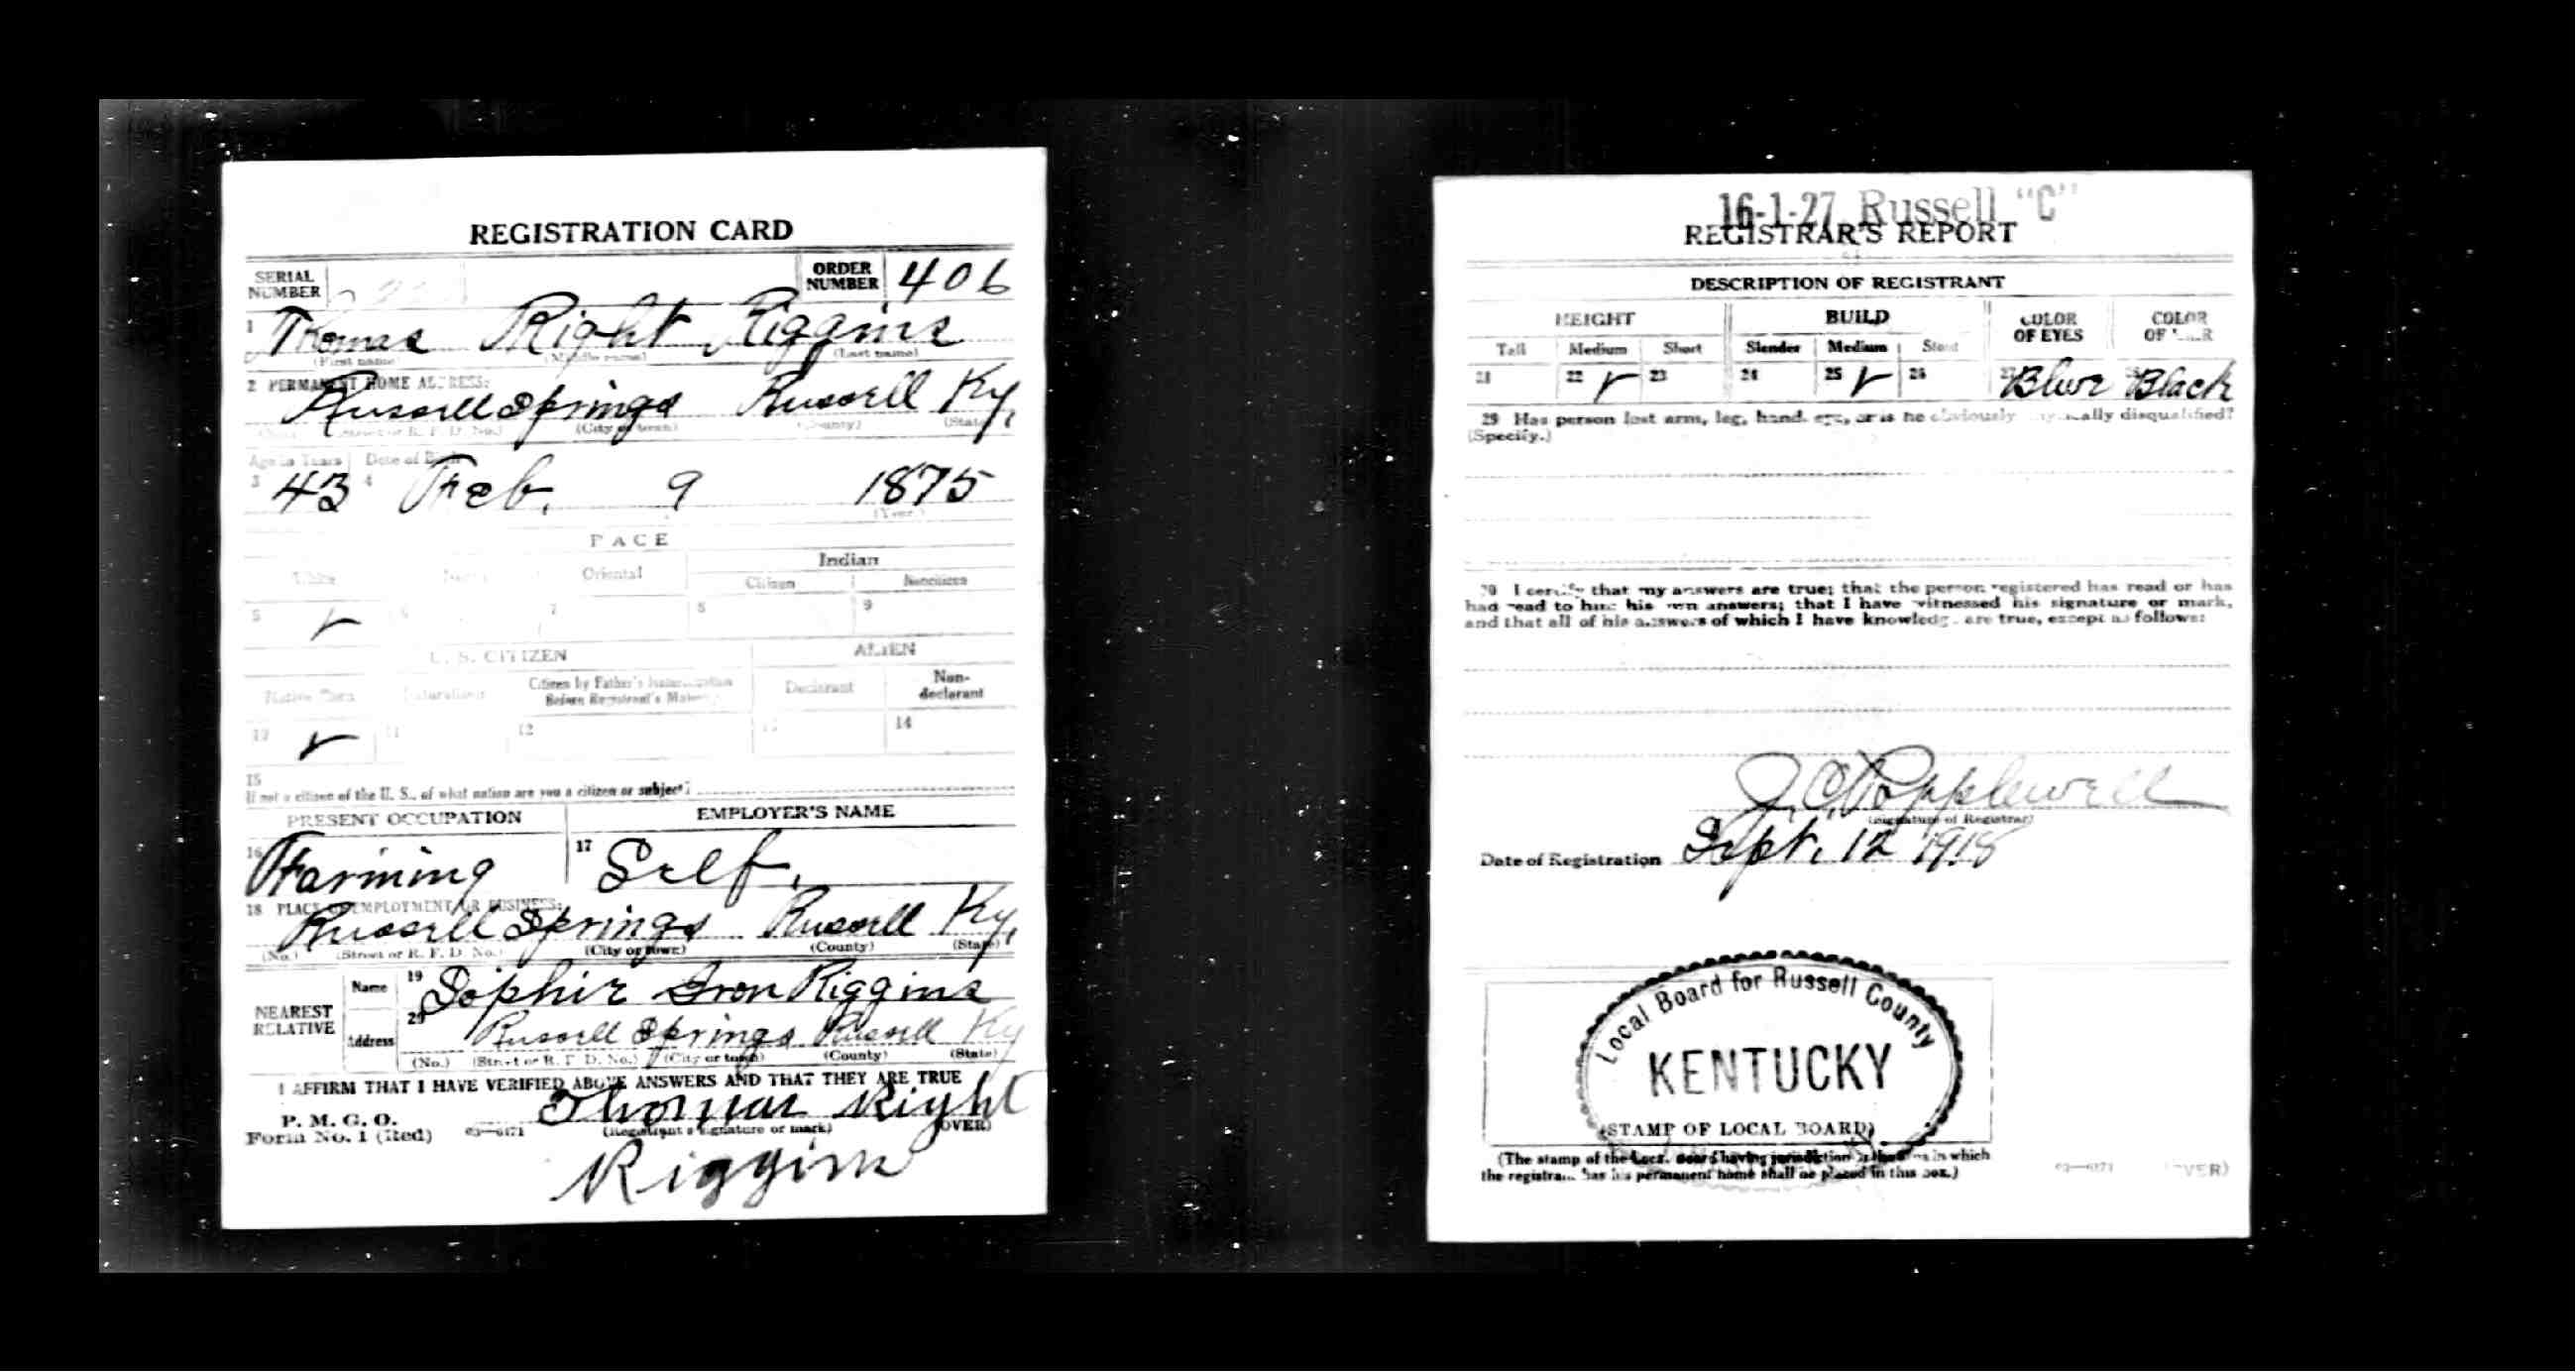 REGISTRATION CARD
SERIAL NUMBER
ORDER NUMBER 406
1 Thomas Right Riggins
(First name) (Middle name) (Last name)
2 PERMANENT HOME ADDRESS:
Russell Springs Russell Ky.
(No.) (Street or R. F. D. No.) (City or town) (County) (State)
Age in Years Date of Birth
3 43 4 Feb. 9 1875
(Year.)
RACE
White Oriental Indian
Citizen Noncitizen
5 6 7 8 9
U. S. CITIZEN ALIEN
Native Born Naturalized Citizen by Father's Naturalization Before Registrant's Majority Declarant Non-declarant
10 11 12 13 14
15
If not a citizen of the U. S., of what nation are you a citizen or subject?
PRESENT OCCUPATION EMPLOYER'S NAME
16 Farming 17 Self.
18 PLACE OF EMPLOYMENT OR BUSINESS:
Russell Springs Russell Ky.
(No.) (Street or R. F. D. No.) (City or town) (County) (State)
NEAREST RELATIVE
Name 19 Sophie Riggins
Address 20 Russell Springs Russell Ky
(No.) (Street or R. F. D. No.) (City or town) (County) (State)
I AFFIRM THAT I HAVE VERIFIED ABOVE ANSWERS AND THAT THEY ARE TRUE
P. M. G. O.
Form No. 1 (Red) 03—6171 Thomas Right
(Registrant's signature or mark) (OVER)
Riggins
16-1-27 Russell "C"
REGISTRAR'S REPORT
DESCRIPTION OF REGISTRANT
HEIGHT BUILD COLOR OF EYES COLOR OF HAIR
Tall Medium Short Slender Medium Stout
21 22 23 24 25 26 27 Blue 28 Black
29 Has person lost arm, leg, hand, eye, or is he obviously physically disqualified?
(Specify.)
30 I certify that my answers are true; that the person registered has read or has
had read to him his own answers; that I have witnessed his signature or mark,
and that all of his answers of which I have knowledge are true, except as follows:
J. C. Popplewell
(Signature of Registrar)
Date of Registration Sept. 12 1918
Local Board for Russell County
KENTUCKY
(STAMP OF LOCAL BOARD)
(The stamp of the Local Board having jurisdiction of the area in which
the registrant has his permanent home shall be placed in this box.)
03—6171 (OVER)